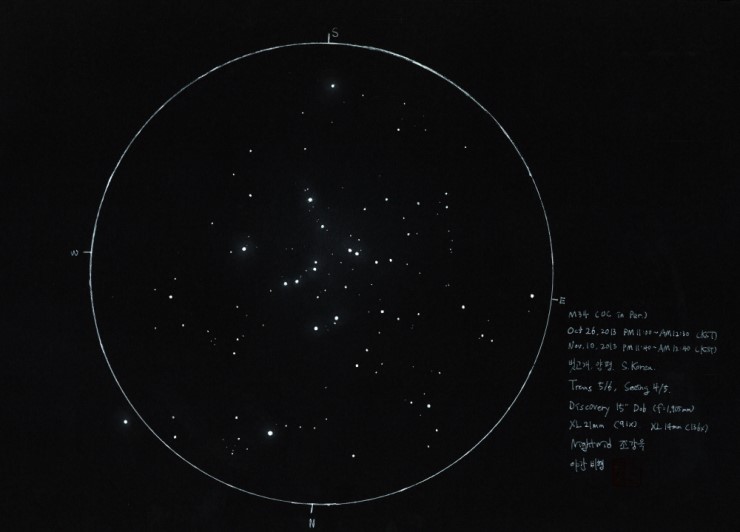 S
W
E
N
M34 (OC in Per)
Oct 26, 2013 PM 11:00 ~ AM 12:30 (KST)
Nov. 10, 2013 PM 11:40 ~ AM 12:40 (KST)
벗고개, 양평, S. Korea.
Trans 5/6, Seeing 4/5.
Discovery 15" Dob (f=1,905mm)
XL 21mm (91x), XL 14mm (136x)
Nightwid 조강욱
야간비행